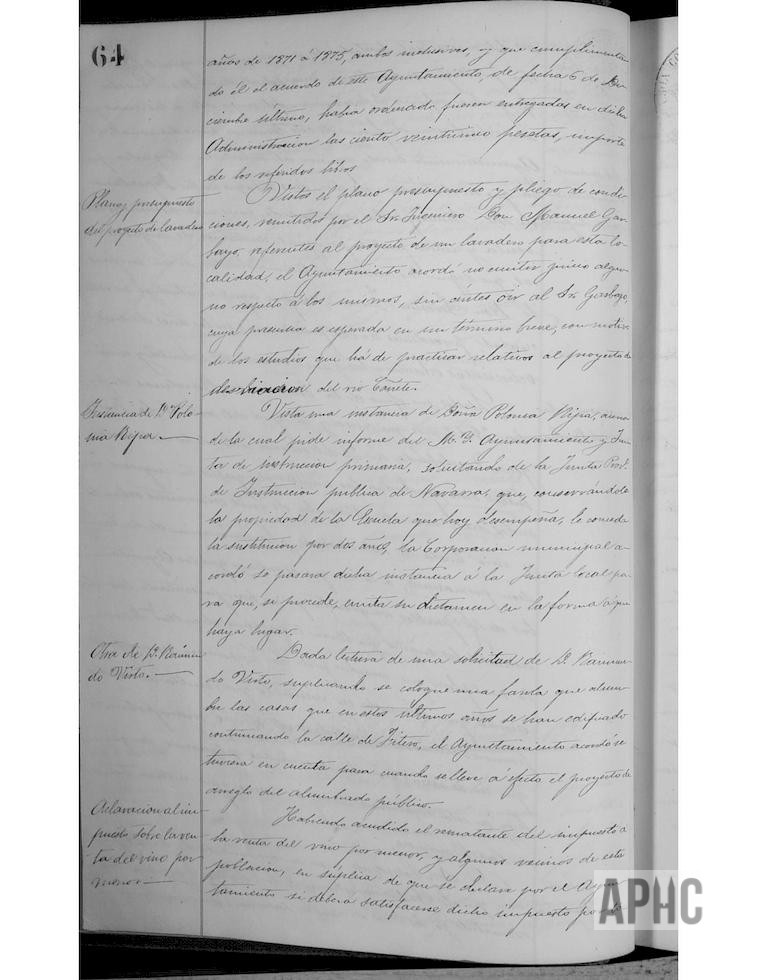 64
años de 1871 á 1875, ambos inclusives, y que cumplimentan
do él el acuerdo de este Ayuntamiento, de fecha 6 de Di
ciembre último, había ordenado fuesen entregadas en dicha
Administracion las ciento veintiuna pesetas, importe
de los referidos libros
Plano y presupuesto
del proyecto de lavadero
Vistos el plano presupuesto y pliego de condi
ciones, remitidos por el Sr. Ingeniero Don Manuel Gar
bayo, referentes al proyecto de un lavadero para esta lo
calidad, el Ayuntamiento acordó no emitir juicio algu
no respecto á los mismos, sin ántes oir al Sr. Garbayo,
cuya presencia es esperada en un término breve, con motivo
de los estudios que há de practicar relativos al proyecto de
desviacion del rio Cañete.
Instancia de Dª Polo-
nia Ripa.
Vista una instancia de Doña Polonia Ripa,
de la cual pide informe del M. Y. Ayuntamiento y Jun
ta de instruccion primaria, solicitando de la Junta Prov.
de Instruccion publica de Navarra, que, conservándole
la propiedad de la Escuela que hoy desempeña, le conceda
la sustitucion por dos años, la Corporacion municipal a-
cordó se pasara dicha instancia á la Junta local pa-
ra que, si procede, emita su dictamen en la forma á que
haya lugar.
Otra de D. Raimun
do Virto.
Dada lectura de una solicitud de D. Raimun
do Virto, suplicando se coloque una farola que alum-
bre las casas que en estos últimos años se han edificado
continuando la calle de Fitero, el Ayuntamiento acordó se
tuviera en cuenta para cuando se lleve á efecto el proyecto de
arreglo del alumbrado público.
Aclaracion al im-
puesto sobre la ven
ta del vino por
menor
Habiendo acudido el rematante del impuesto a
la venta del vino por menor, y algunos vecinos de esta
poblacion, en suplica de que se declare por el Ayun
tamiento si deberá satisfacerse dicho impuesto por
APHC